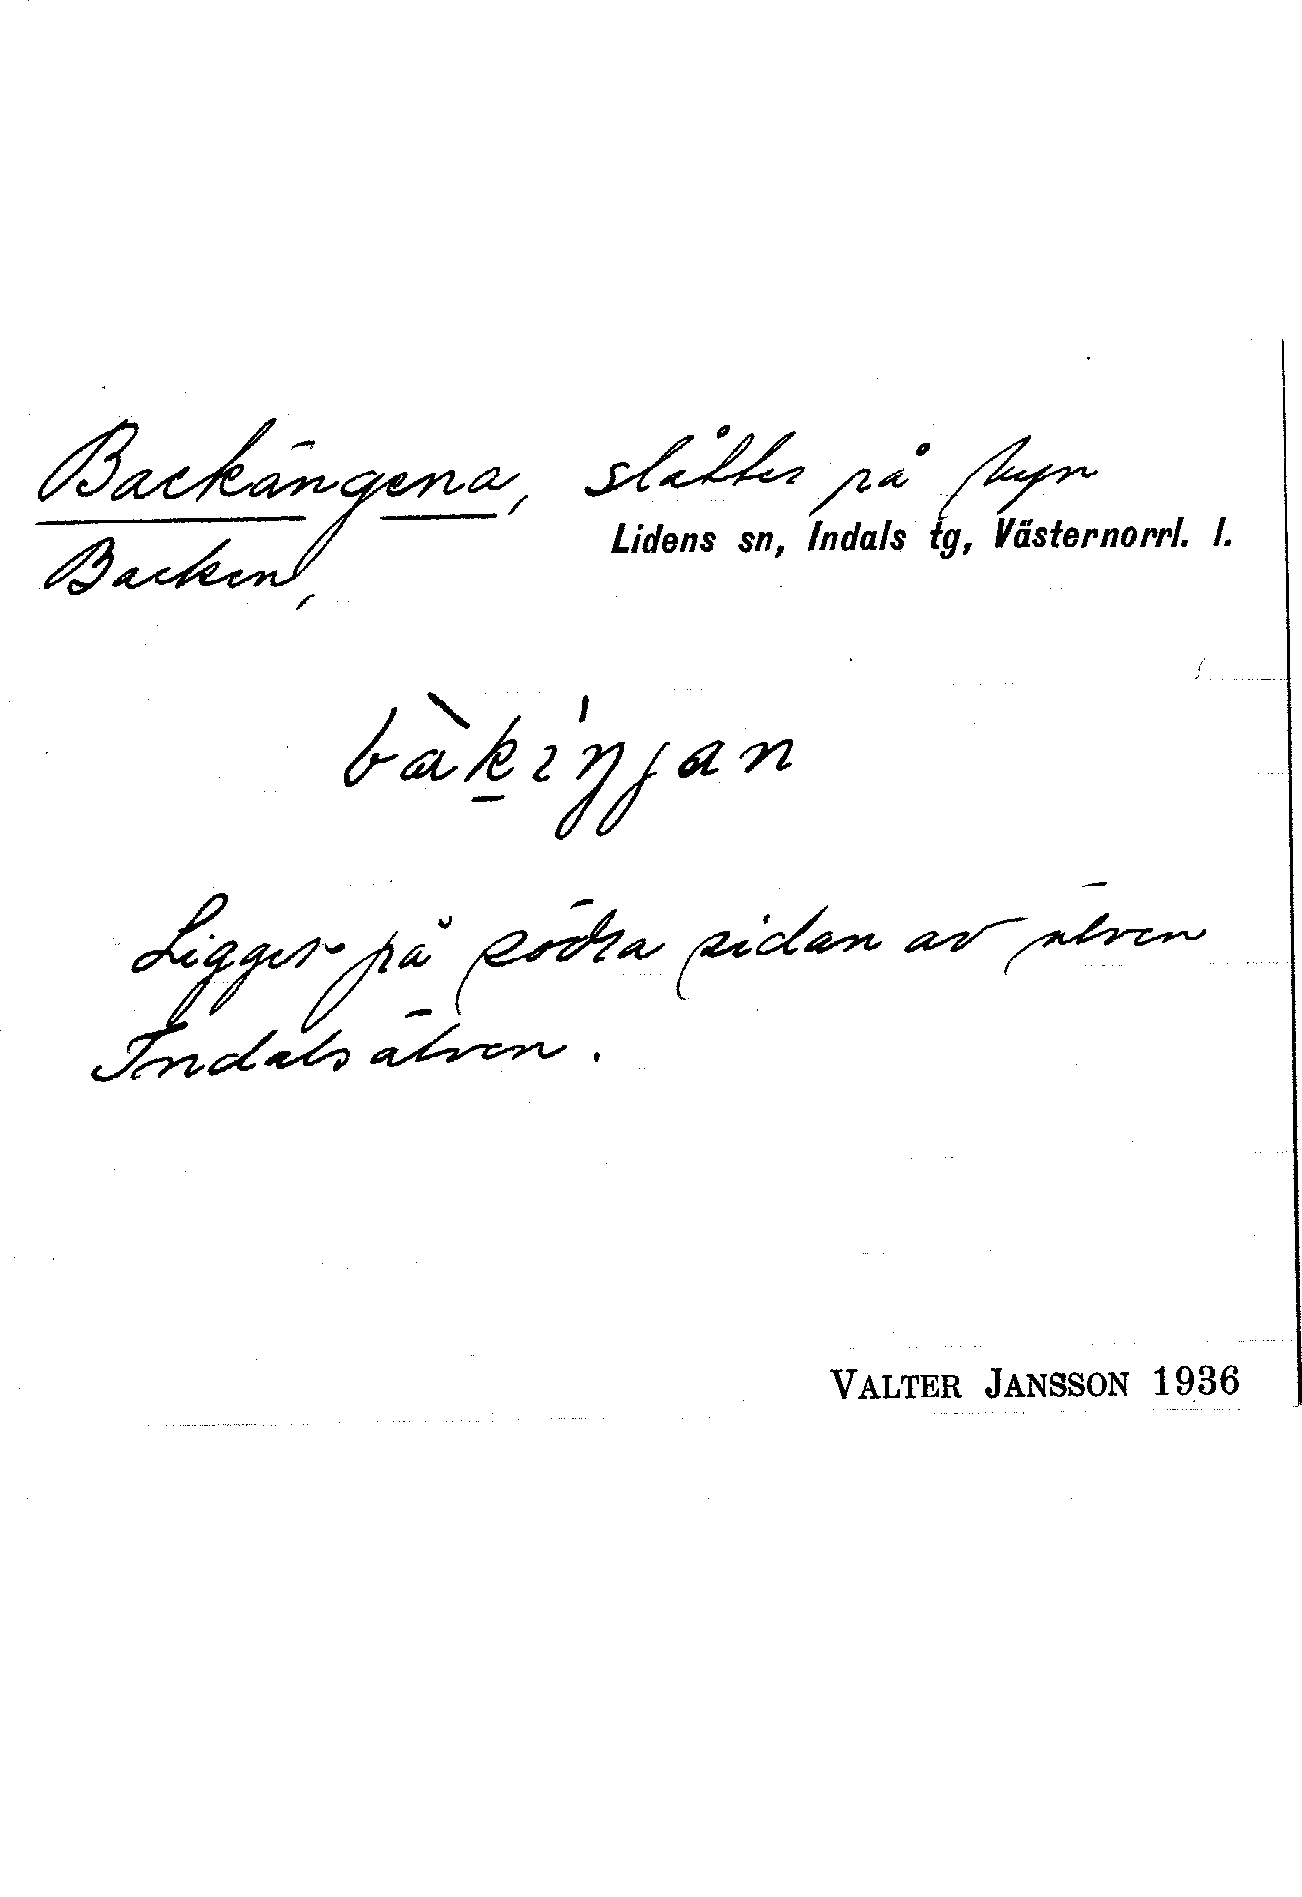 Backängena, slåtter på byn
Lidens sn, Indals tg, Västernorrl. l.
Backen,
bàki̍ŋjan
Ligger på södra sidan av älven
Indalsälven.
VALTER JANSSON 1936